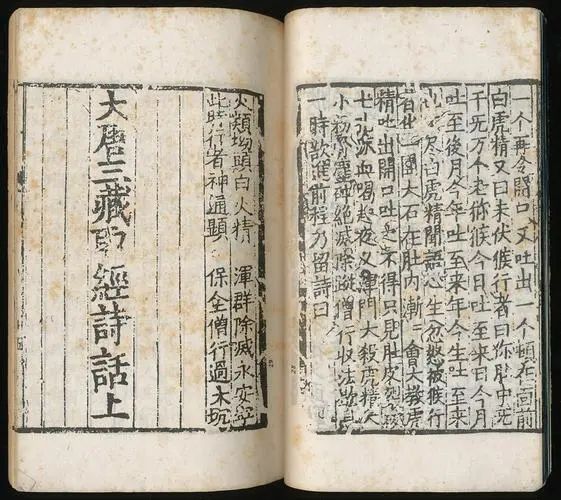 一个再令開口又吐出一个頓在面前
白虎精又曰未伏猴行者曰你肚中无
千无万个老獼猴今日吐至來日今月
吐至後月今年吐至來年今生吐至來
尽白虎精聞語心生忿怒被猴行
者化一團大石在肚内漸會大教虎
精吐出開口吐之不得只見肚皮裂破
七孔流血喝起夜叉渾門大殺虎精大
小粉骨塵碎絶滅除蹤僧行收法歇息
一時欲進前程乃留詩曰
火類坳頭白火精 渾群除滅永安寧
此時行者神通顯 保全僧行過大坑
大唐三藏取經詩話上